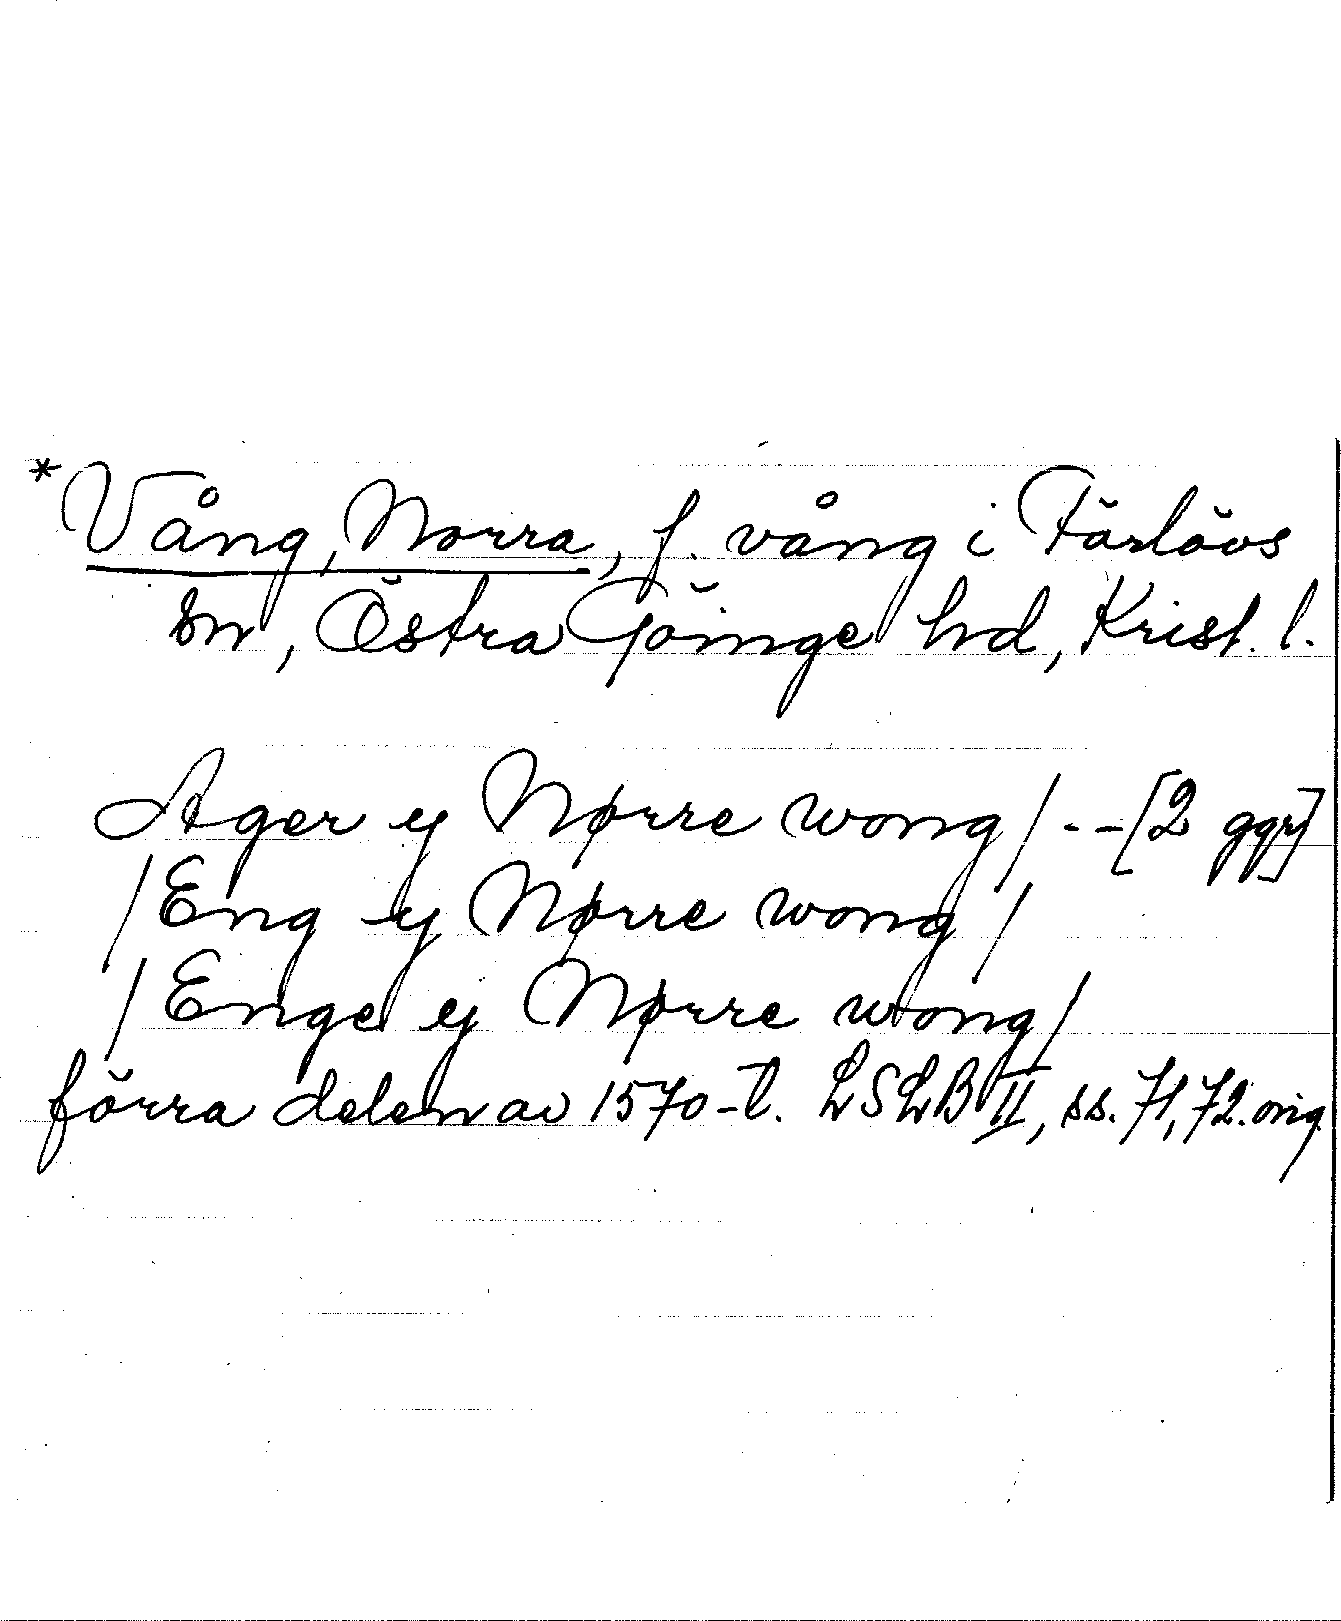 *Vång, Norra, f. vång i Färlövs
sn, Östra Göinge hd, Krist. l.
Ager y Nørre wong/ - - [2 ggr]
/Eng y Nørre wong/
/Enge y Nørre wong/
förra delen av 1570-t. LSLB II, ss. 71, 72. orig.